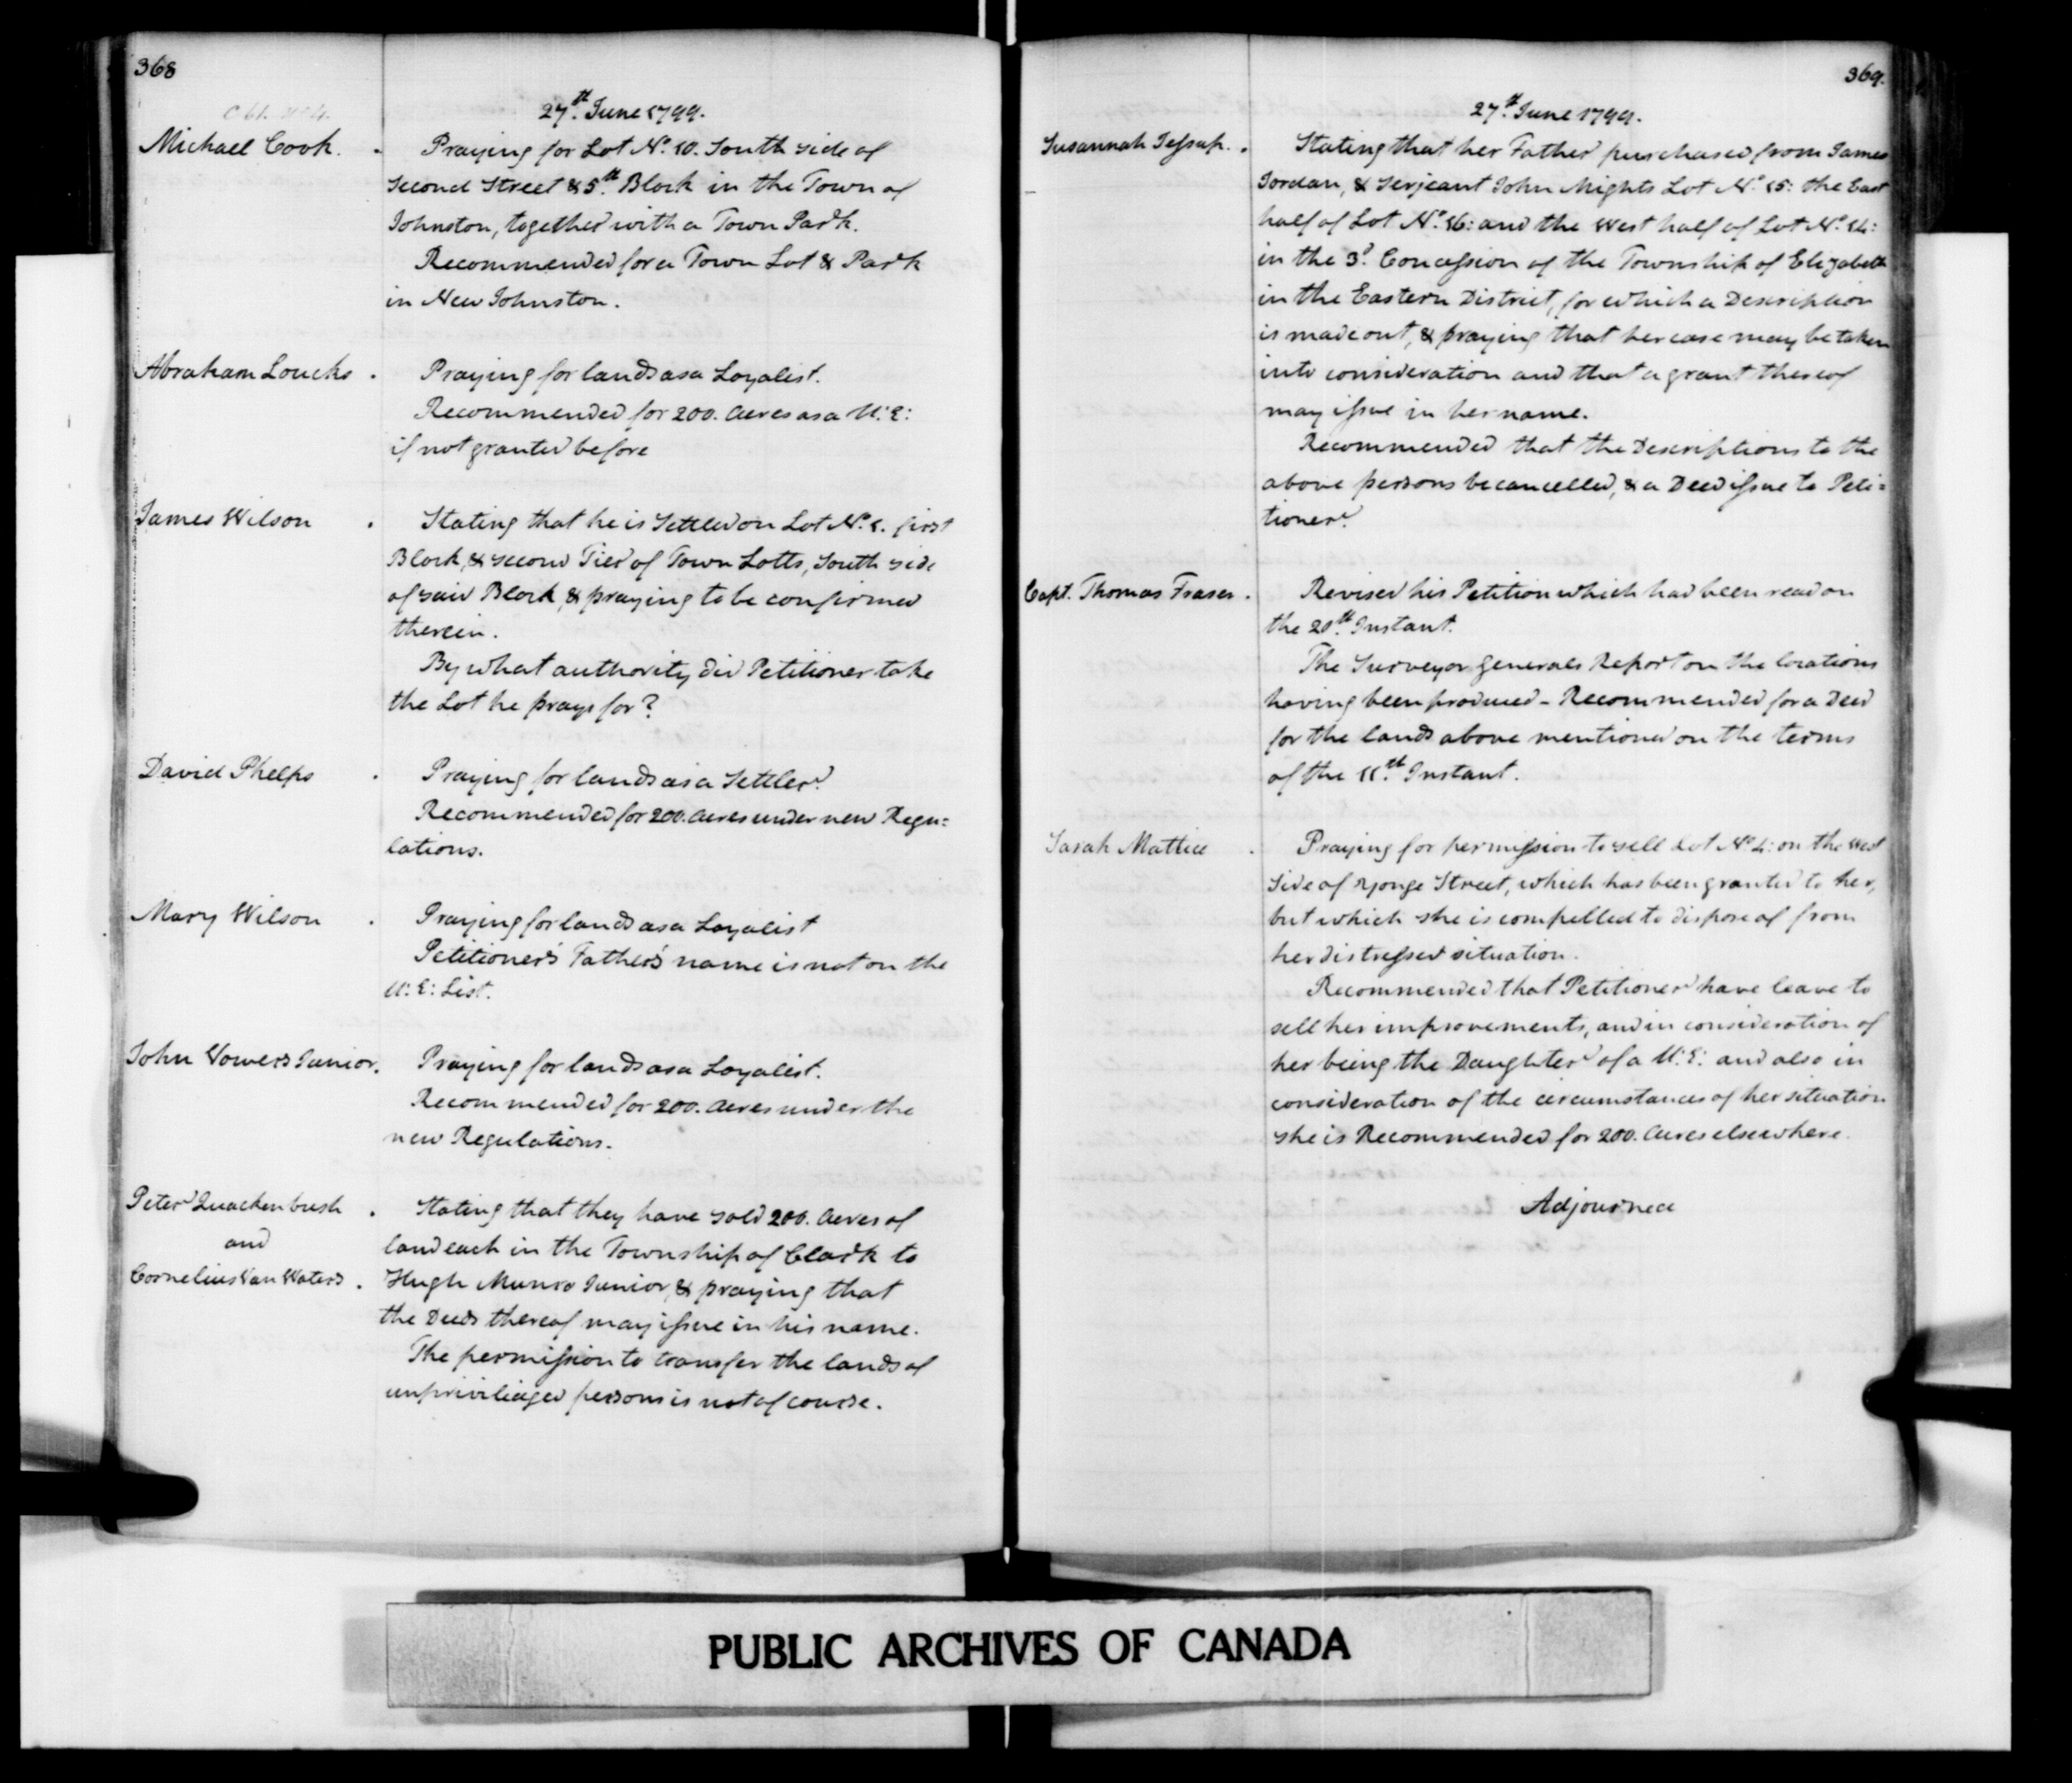 368
27th June 1799.
Michael Cook. Praying for Lot No. 10. South side of
Second Street & 5th Block in the Town of
Johnston, together with a Town Park.
Recommended for a Town Lot & Park
in New Johnston.
Abraham Loucks. Praying for lands as a Loyalist.
Recommended for 200. Acres as a U:E:
if not granted before
James Wilson. Stating that he is Settled on Lot No. 1. first
Block, & second Tier of Town Lotts, South side
of said Block, & praying to be confirmed
therein.
By what authority did Petitioner take
the Lot he prays for?
David Phelps. Praying for lands as a Settler.
Recommended for 200. Acres under new Regu=
lations.
Mary Wilson. Praying for lands as a Loyalist
Petitioner's Father's name is not on the
U:E: List.
John Vowers Junior. Praying for lands as a Loyalist.
Recommended for 200. Acres under the
new Regulations.
Peter Quackenbush. Stating that they have sold 200. Acres of
and land each in the Township of Clark to
Cornelius Van Waters. Hugh Munro Junior, & praying that
the Deeds thereof may issue in his name.
The permission to transfer the lands of
unpriviliaged persons is not of course.
369.
27th June 1799.
Susannah Jessup. Stating that her Father purchased from James
Jordan, & Serjeant John Mights Lot No. 15: the East
half of Lot No. 16: and the West half of Lot No. 14:
in the 3d. Concession of the Township of Elizabeth
in the Eastern District, for which a Description
is made out, & praying that her case may be taken
into consideration and that a grant thereof
may issue in her name.
Recommended that the Descriptions to the
above persons be cancelled, & a Deed issue to Peti=
tioner.
Capt. Thomas Fraser. Revised his Petition which had been read on
the 20th Instant.
The Surveyor Generals Report on the locations
having been produced – Recommended for a Deed
for the lands above mentioned on the terms
of the 11th Instant.
Sarah Mattice. Praying for permission to sell Lot No 4: on the West
Side of Yonge Street, which has been granted to her,
but which she is compelled to dispose of from
her distressed situation.
Recommended that Petitioner have leave to
sell her improvements, and in consideration of
her being the Daughter of a U:E: and also in
consideration of the circumstances of her situation
she is Recommended for 200. Acres elsewhere.
Adjourned
PUBLIC ARCHIVES OF CANADA